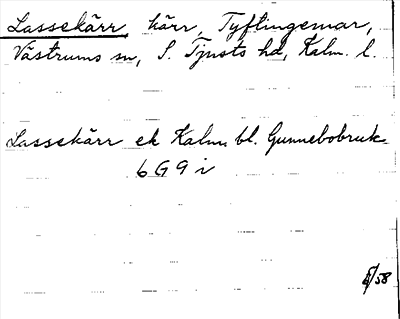 Lassekärr, kärr, Tyftingemar,
Västrums sn, S. Tjusts hd, Kalm. l.
Lassekärr ek Kalm. bl. Gunnebobruk
6 G 9 i
/58